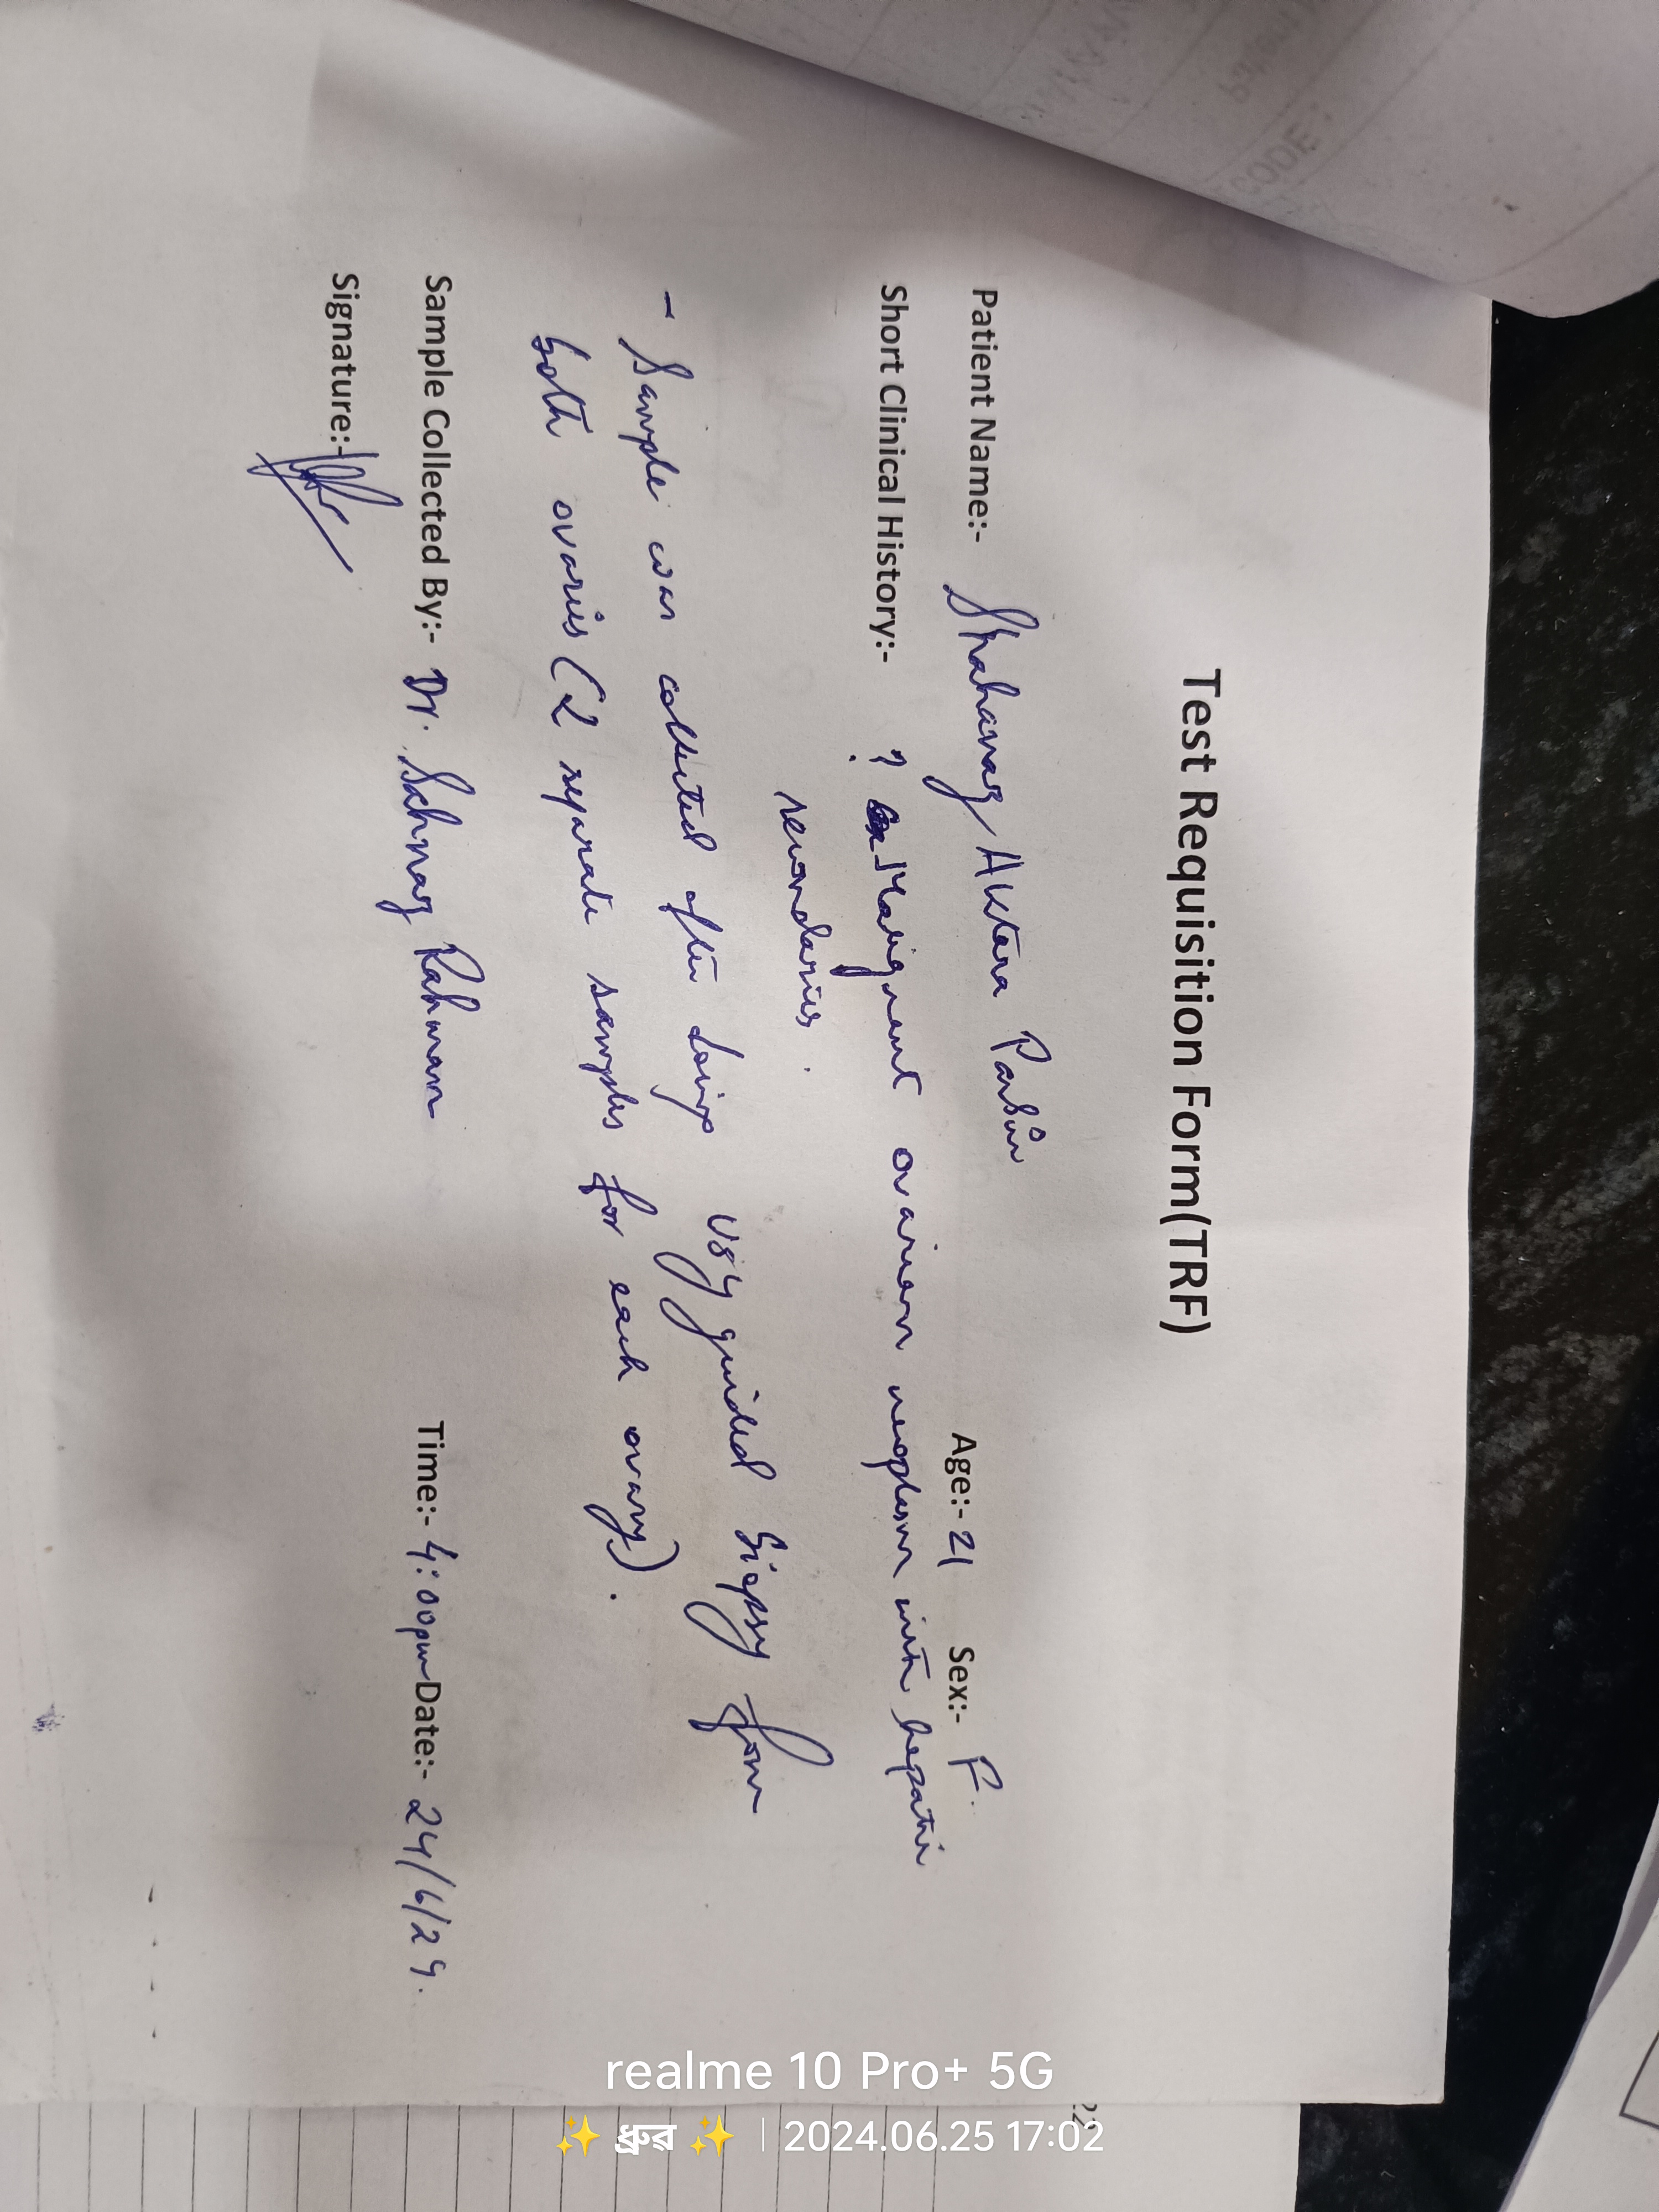 Test Requisition Form(TRF)
Patient Name:- Shahanaz Aktara Parbin Age:- 21 Sex:- F.
Short Clinical History:- ? Malignant ovarian neoplasm with hepatic
secondaries.
- Sample was collected after doing USG guided biopsy from
both ovaries (2 separate samples for each ovary).
Sample Collected By:- Dr. Sahnaz Rahman Time:- 4:00pm Date:- 24/6/24.
Signature:-
CODE :
realme 10 Pro+ 5G
✨ ধ্রুব ✨ | 2024.06.25 17:02